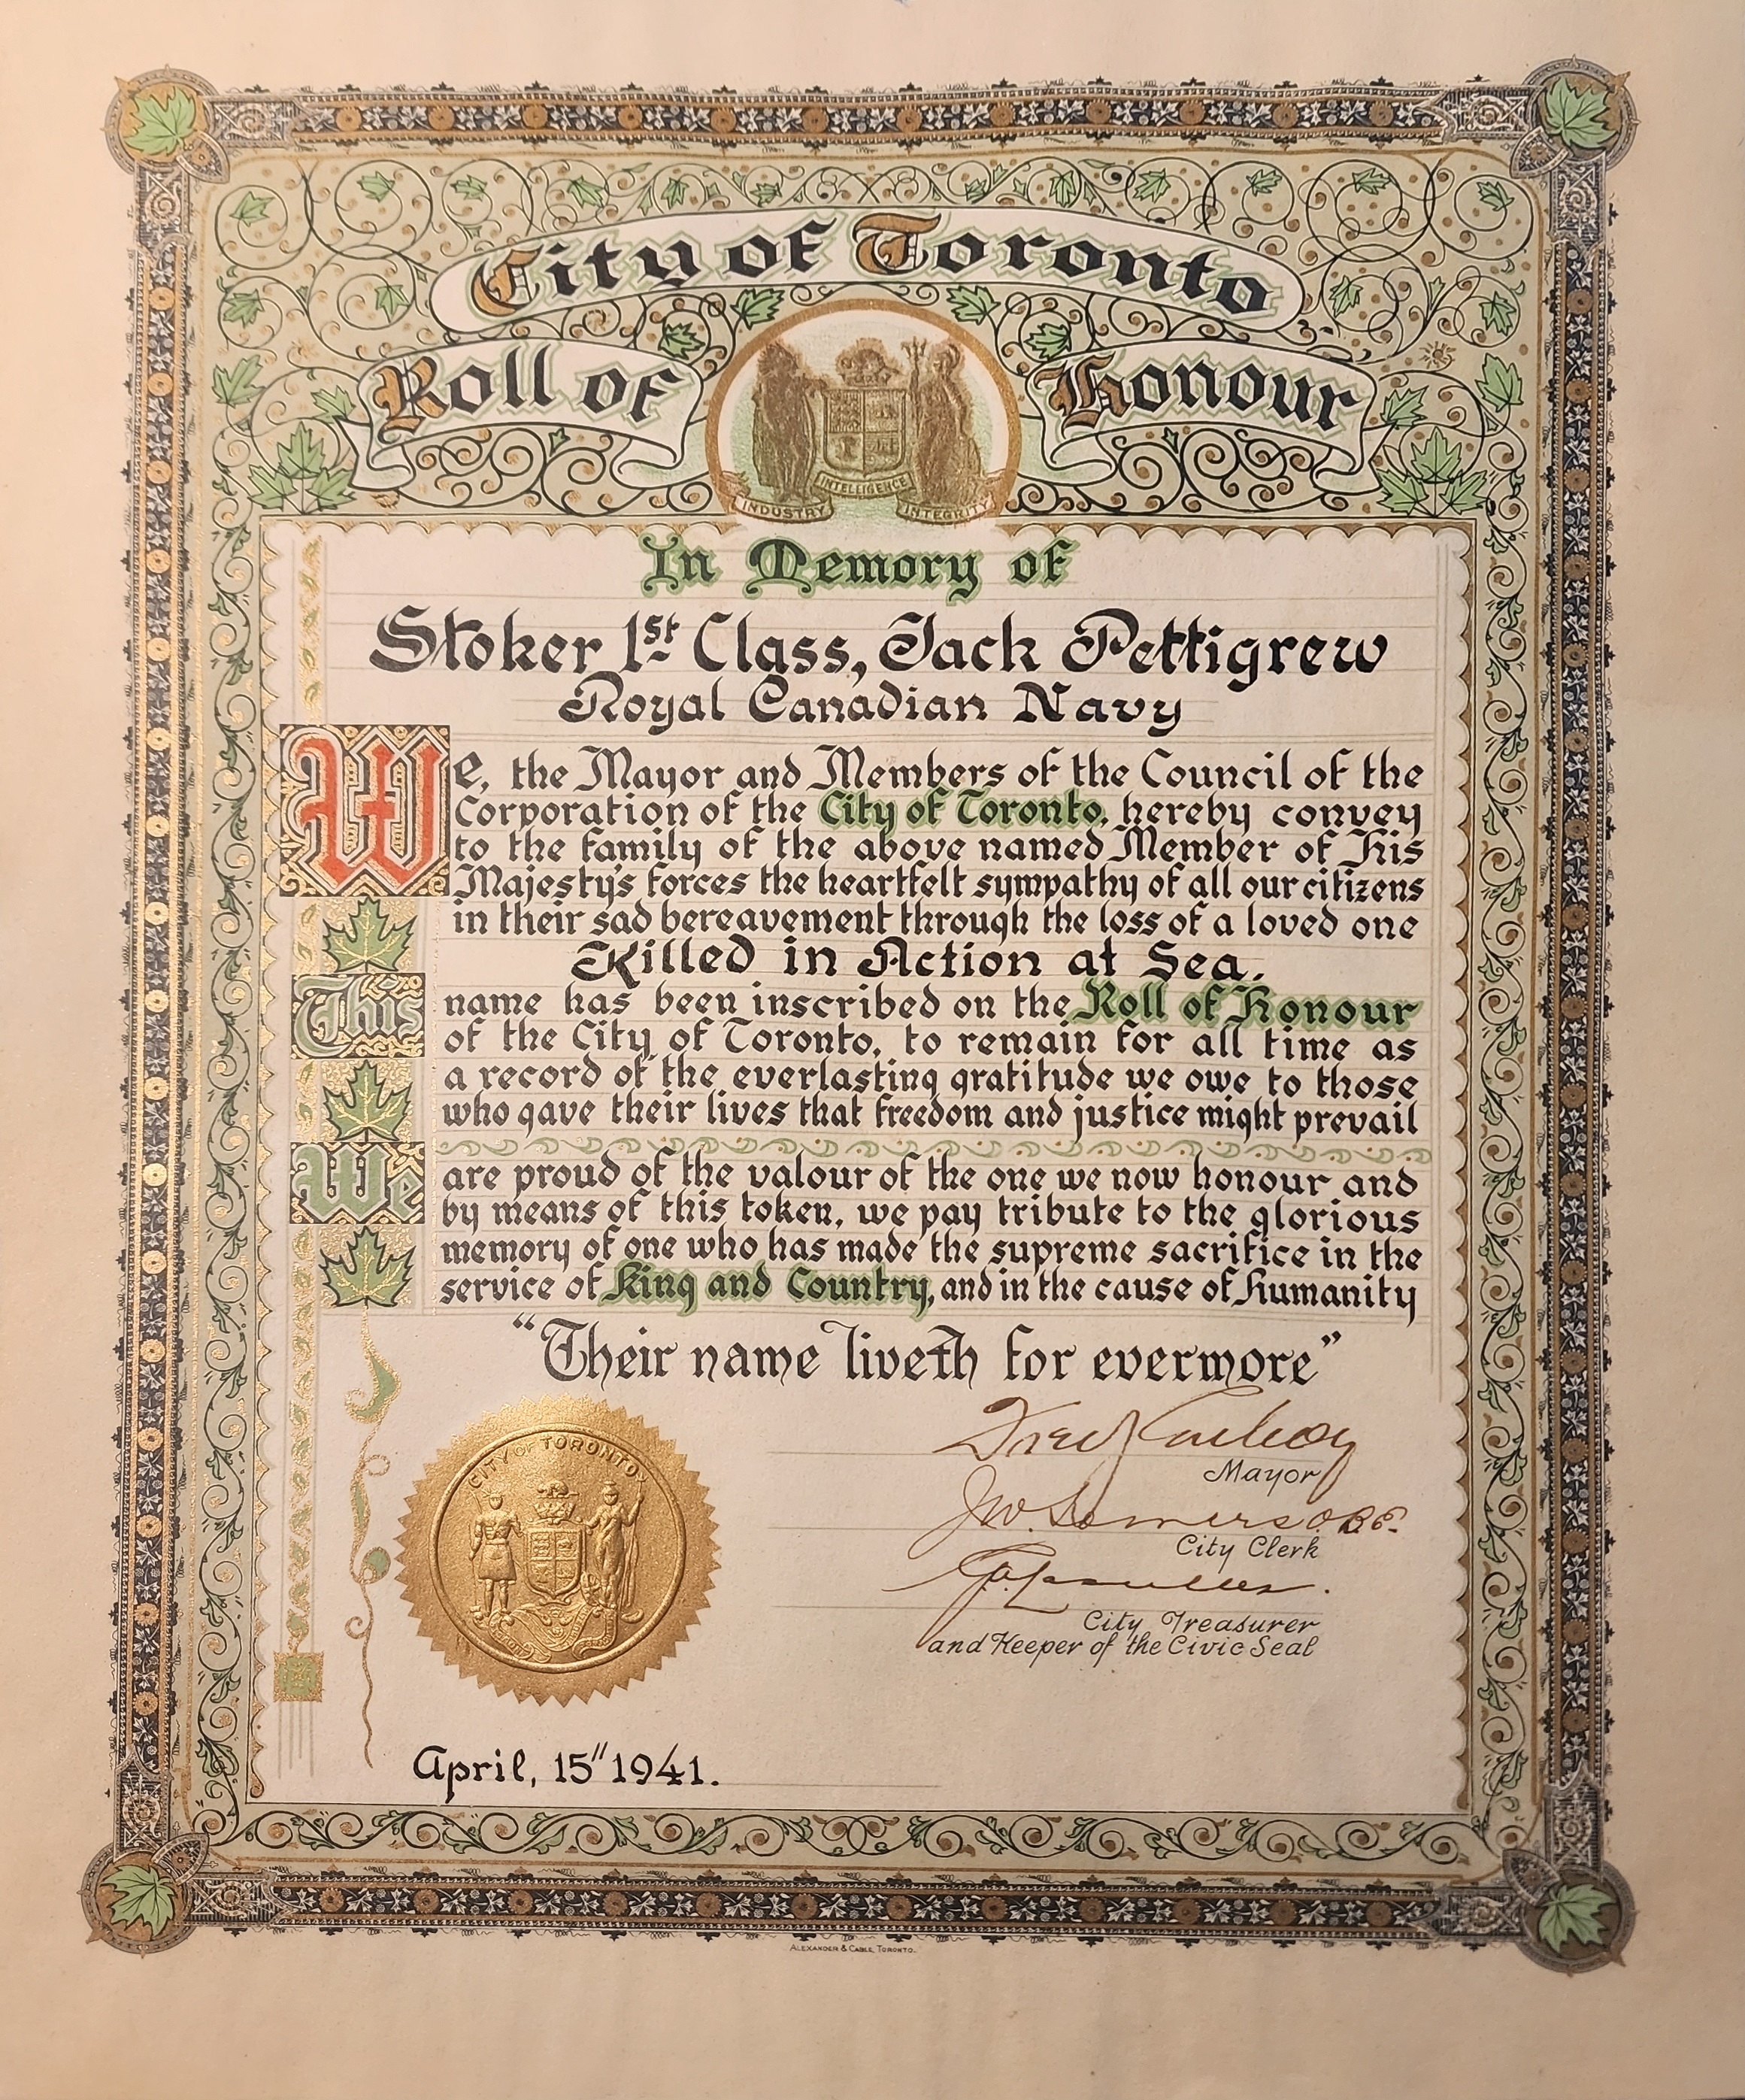 City of Toronto
Roll of Honour
INTELLIGENCE
INDUSTRY INTEGRITY
In Memory of
Stoker 1st Class, Jack Pettigrew
Royal Canadian Navy
We, the Mayor and Members of the Council of the
Corporation of the City of Toronto, hereby convey
to the family of the above named Member of His
Majesty's forces the heartfelt sympathy of all our citizens
in their sad bereavement through the loss of a loved one
Killed in Action at Sea.
This name has been inscribed on the Roll of Honour
of the City of Toronto, to remain for all time as
a record of the everlasting gratitude we owe to those
who gave their lives that freedom and justice might prevail
We are proud of the valour of the one we now honour and
by means of this token, we pay tribute to the glorious
memory of one who has made the supreme sacrifice in the
service of King and Country, and in the cause of humanity
"Their name liveth for evermore"
Fred J Conboy
Mayor
CITY OF TORONTO
J.W. Somers O.B.E.
City Clerk
City Treasurer
and Keeper of the Civic Seal
April, 15" 1941.
ALEXANDER & CABLE, TORONTO.